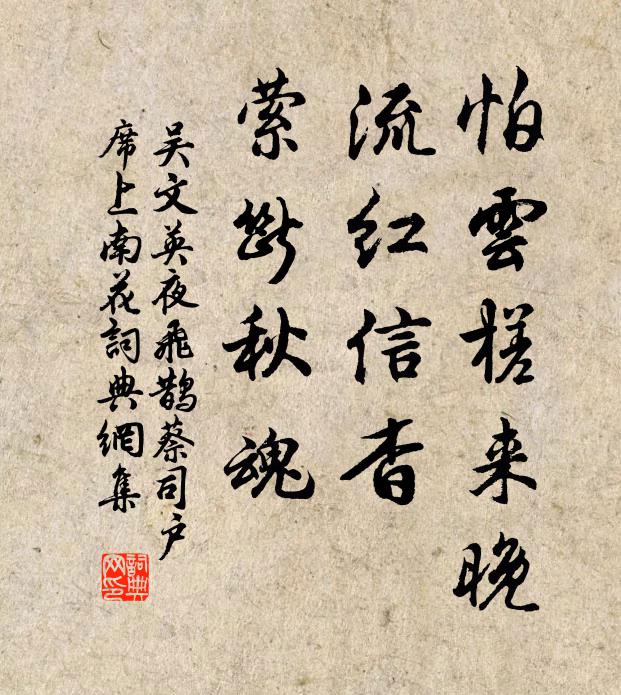 怕雲槎来晚
流紅信杳
萦断秋魂
吴文英夜飛鵲蔡司户
席上南花詞典網集
詞典
网印